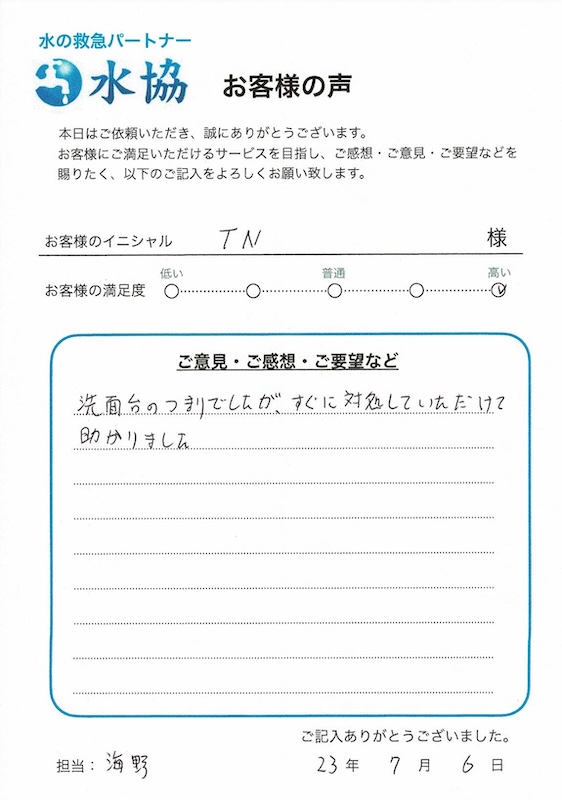 水の救急パートナー
水協 お客様の声
本日はご依頼いただき、誠にありがとうございます。
お客様にご満足いただけるサービスを目指し、ご感想・ご意見・ご要望などを
賜りたく、以下のご記入をよろしくお願い致します。
お客様のイニシャル TN 様
低い 普通 高い
お客様の満足度
ご意見・ご感想・ご要望など
洗面台のつまりでしたが、すぐに対処していただけて
助かりました
ご記入ありがとうございました。
担当：海野 23年 7月 6日